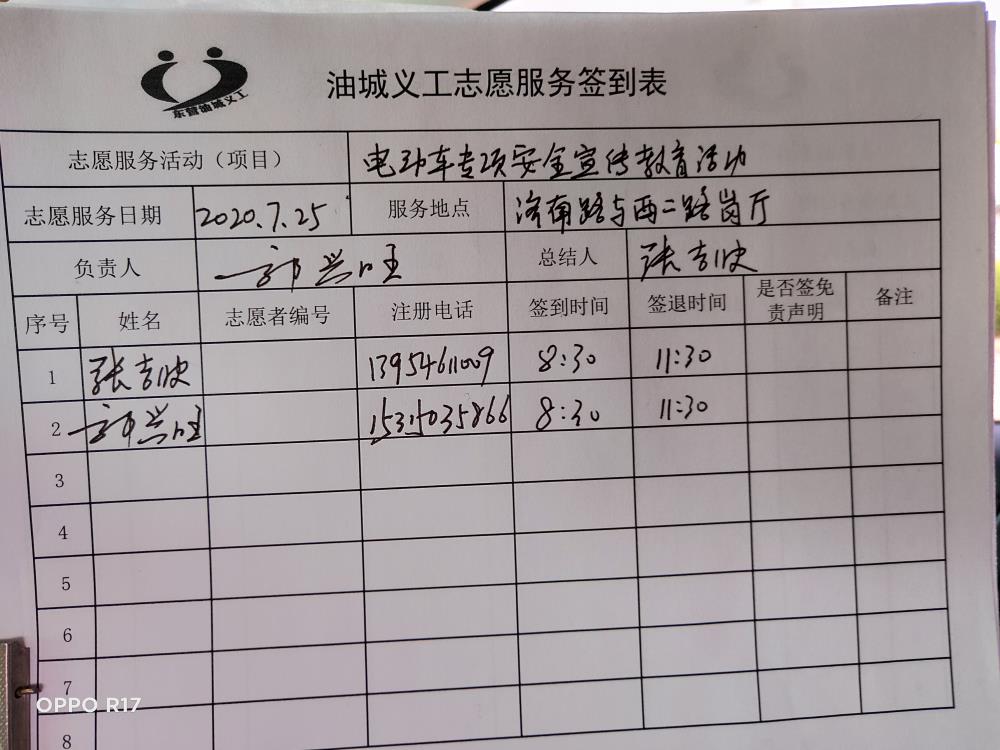 东营油城义工
油城义工志愿服务签到表
志愿服务活动（项目） 电动车专项安全宣传教育活动
志愿服务日期 2020.7.25 服务地点 济南路与西二路岗厅
负责人 郭兴旺 总结人 张吉波
序号 姓名 志愿者编号 注册电话 签到时间 签退时间 是否签免责声明 备注
1 张吉波 13954611009 8:30 11:30
2 郭兴旺 15315035866 8:30 11:30
3
4
5
6
7
8
OPPO R17